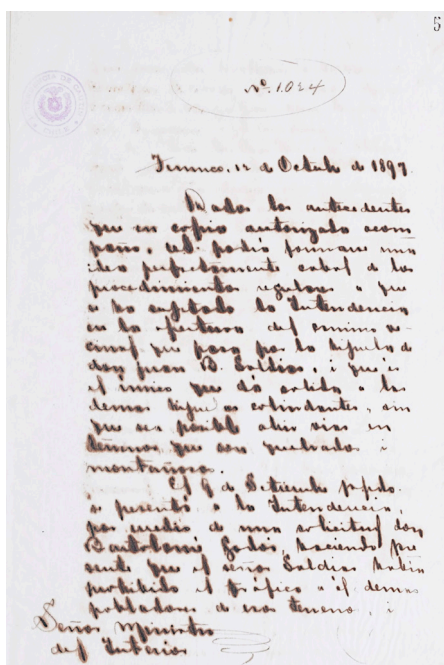 5
Nº. 1.024
Temuco, 12 de Octubre de 1897.
Dados los antecedentes
que en copia autorizada acom
paño, Ud. podrá formarse una
idea perfectamente cabal de los
procedimientos regulares a que
se ha sujetado la Intendencia
en la apertura del camino ve-
cinal que pasa por la hijuela de
don Juan B. Saldias, i que es
el único que dá salida a las
demas hijuelas colindantes, sin
que sea posible abrir vias en
terrenos que son quebrados i
montañosos.
El 9 de Setiembre ppdo.
se presentó a la Intendencia,
por medio de una solicitud don
Bartolomé Godoi, haciendo pre
sente que el señor Saldias habia
prohibido el tráfico a él demas
pobladores de esos terrenos, i
Señor Ministro
del Interior